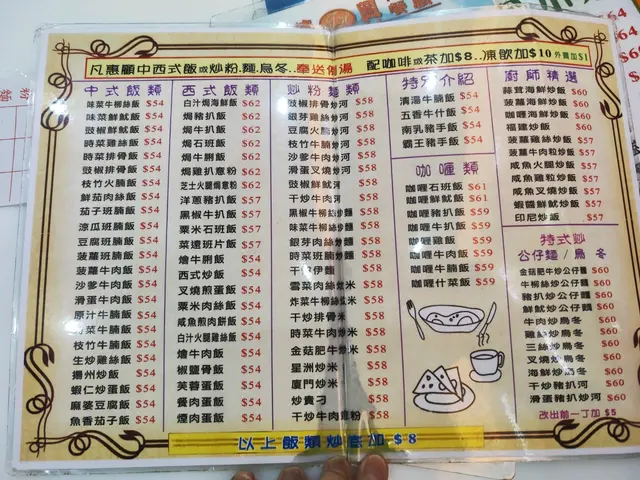 凡惠顧中西式飯或炒粉.麵.烏冬..奉送例湯 配咖啡或茶加$8..凍飲加$10 外賣加$1
中式飯類
味菜牛柳絲飯 $54
味菜鮮魷飯 $54
豉椒鮮魷飯 $54
時菜雞絲飯 $54
時菜排骨飯 $54
豉椒排骨飯 $54
枝竹火腩飯 $54
鮮茄肉絲飯 $54
茄子班腩飯 $54
涼瓜班腩飯 $54
豆腐班腩飯 $54
菠蘿班腩飯 $54
菠蘿牛肉飯 $54
沙爹牛肉飯 $54
滑蛋牛肉飯 $54
原汁牛腩飯 $54
時菜牛腩飯 $54
枝竹牛腩飯 $54
生炒雞絲飯 $54
揚州炒飯 $54
蝦仁炒蛋飯 $54
麻婆豆腐飯 $54
魚香茄子飯 $54
西式飯類
白汁焗海鮮飯 $62
焗豬扒飯 $62
焗牛扒飯 $62
焗石班飯 $62
焗牛脷飯 $62
焗雞扒意粉 $62
芝士火腿焗意粉 $62
洋蔥豬扒飯 $57
黑椒牛扒飯 $57
粟米石班飯 $57
菜遠班片飯 $57
燴牛脷飯 $54
西式炒飯 $54
叉燒煎蛋飯 $54
粟米肉絲飯 $54
咸魚煎肉餅飯 $54
白汁火腿雞絲飯 $54
燴牛肉飯 $54
椒鹽骨飯 $54
芙蓉蛋飯 $54
餐肉蛋飯 $54
煙肉蛋飯 $54
炒粉麵類
豉椒排骨炒河 $58
銀芽雞絲炒河 $58
豆腐火腩炒河 $58
枝竹牛腩炒河 $58
沙爹牛肉炒河 $58
滑蛋叉燒炒河 $58
豉椒鮮魷河 $58
干炒牛河 $58
黑椒牛柳絲炒麵 $58
味菜牛柳絲炒麵 $58
銀芽肉絲炒麵 $58
時菜班腩炒麵 $58
干炒伊麵 $58
雪菜肉絲炆米 $58
炸菜牛柳絲炆米 $58
干炒排骨米 $58
時菜牛肉炒米 $58
金菇肥牛炒米 $58
星洲炒米 $58
廈門炒米 $58
炒貴刁 $58
干炒牛肉意粉 $58
特別介紹
清湯牛腩飯 $54
五香牛什飯 $54
南乳豬手飯 $54
霸王豬手飯 $54
咖喱類
咖喱石班飯 $61
咖喱鮮魷飯 $61
咖喱豬扒飯 $59
咖喱牛扒飯 $59
咖喱雞飯 $59
咖喱牛肉飯 $59
咖喱牛腩飯 $59
咖喱什菜飯 $59
廚師精選
蒜茸海鮮炒飯 $60
菠蘿海鮮炒飯 $60
咖喱海鮮炒飯 $60
福建炒飯 $60
菠蘿雞絲炒飯 $57
菠蘿牛粒炒飯 $57
咸魚火腿炒飯 $57
咸魚雞粒炒飯 $57
咸魚叉燒炒飯 $57
蝦醬鮮魷炒飯 $57
印尼炒飯 $57
特式炒
公仔麵/烏冬
金菇肥牛炒公仔麵 $60
牛柳絲炒公仔麵 $60
豬扒炒公仔麵 $60
鮮魷炒公仔麵 $60
牛肉炒烏冬 $60
雞絲炒烏冬 $60
三絲炒烏冬 $60
叉燒炒烏冬 $60
海鮮炒烏冬 $60
干炒豬扒河 $60
滑蛋豬扒炒河 $60
改出前一丁加 $5
以上飯類炒底加 $8